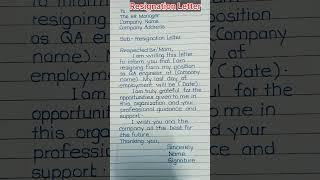 Resignation Letter
To
The HR Manager
Company Name
Company Address
Sub - Resignation Letter
Respected Sir/Mam,
I am writing this letter
to inform you that I am
resigning from my position
as QA engineer at (Company
name). My last day of
employment will be (Date).
I am truly grateful for the
opportunities given to me in
this organization and your
professional guidance and
support.
I wish you and the
company all the best for
the future.
Thanking you,
Sincerely
Name
Signature